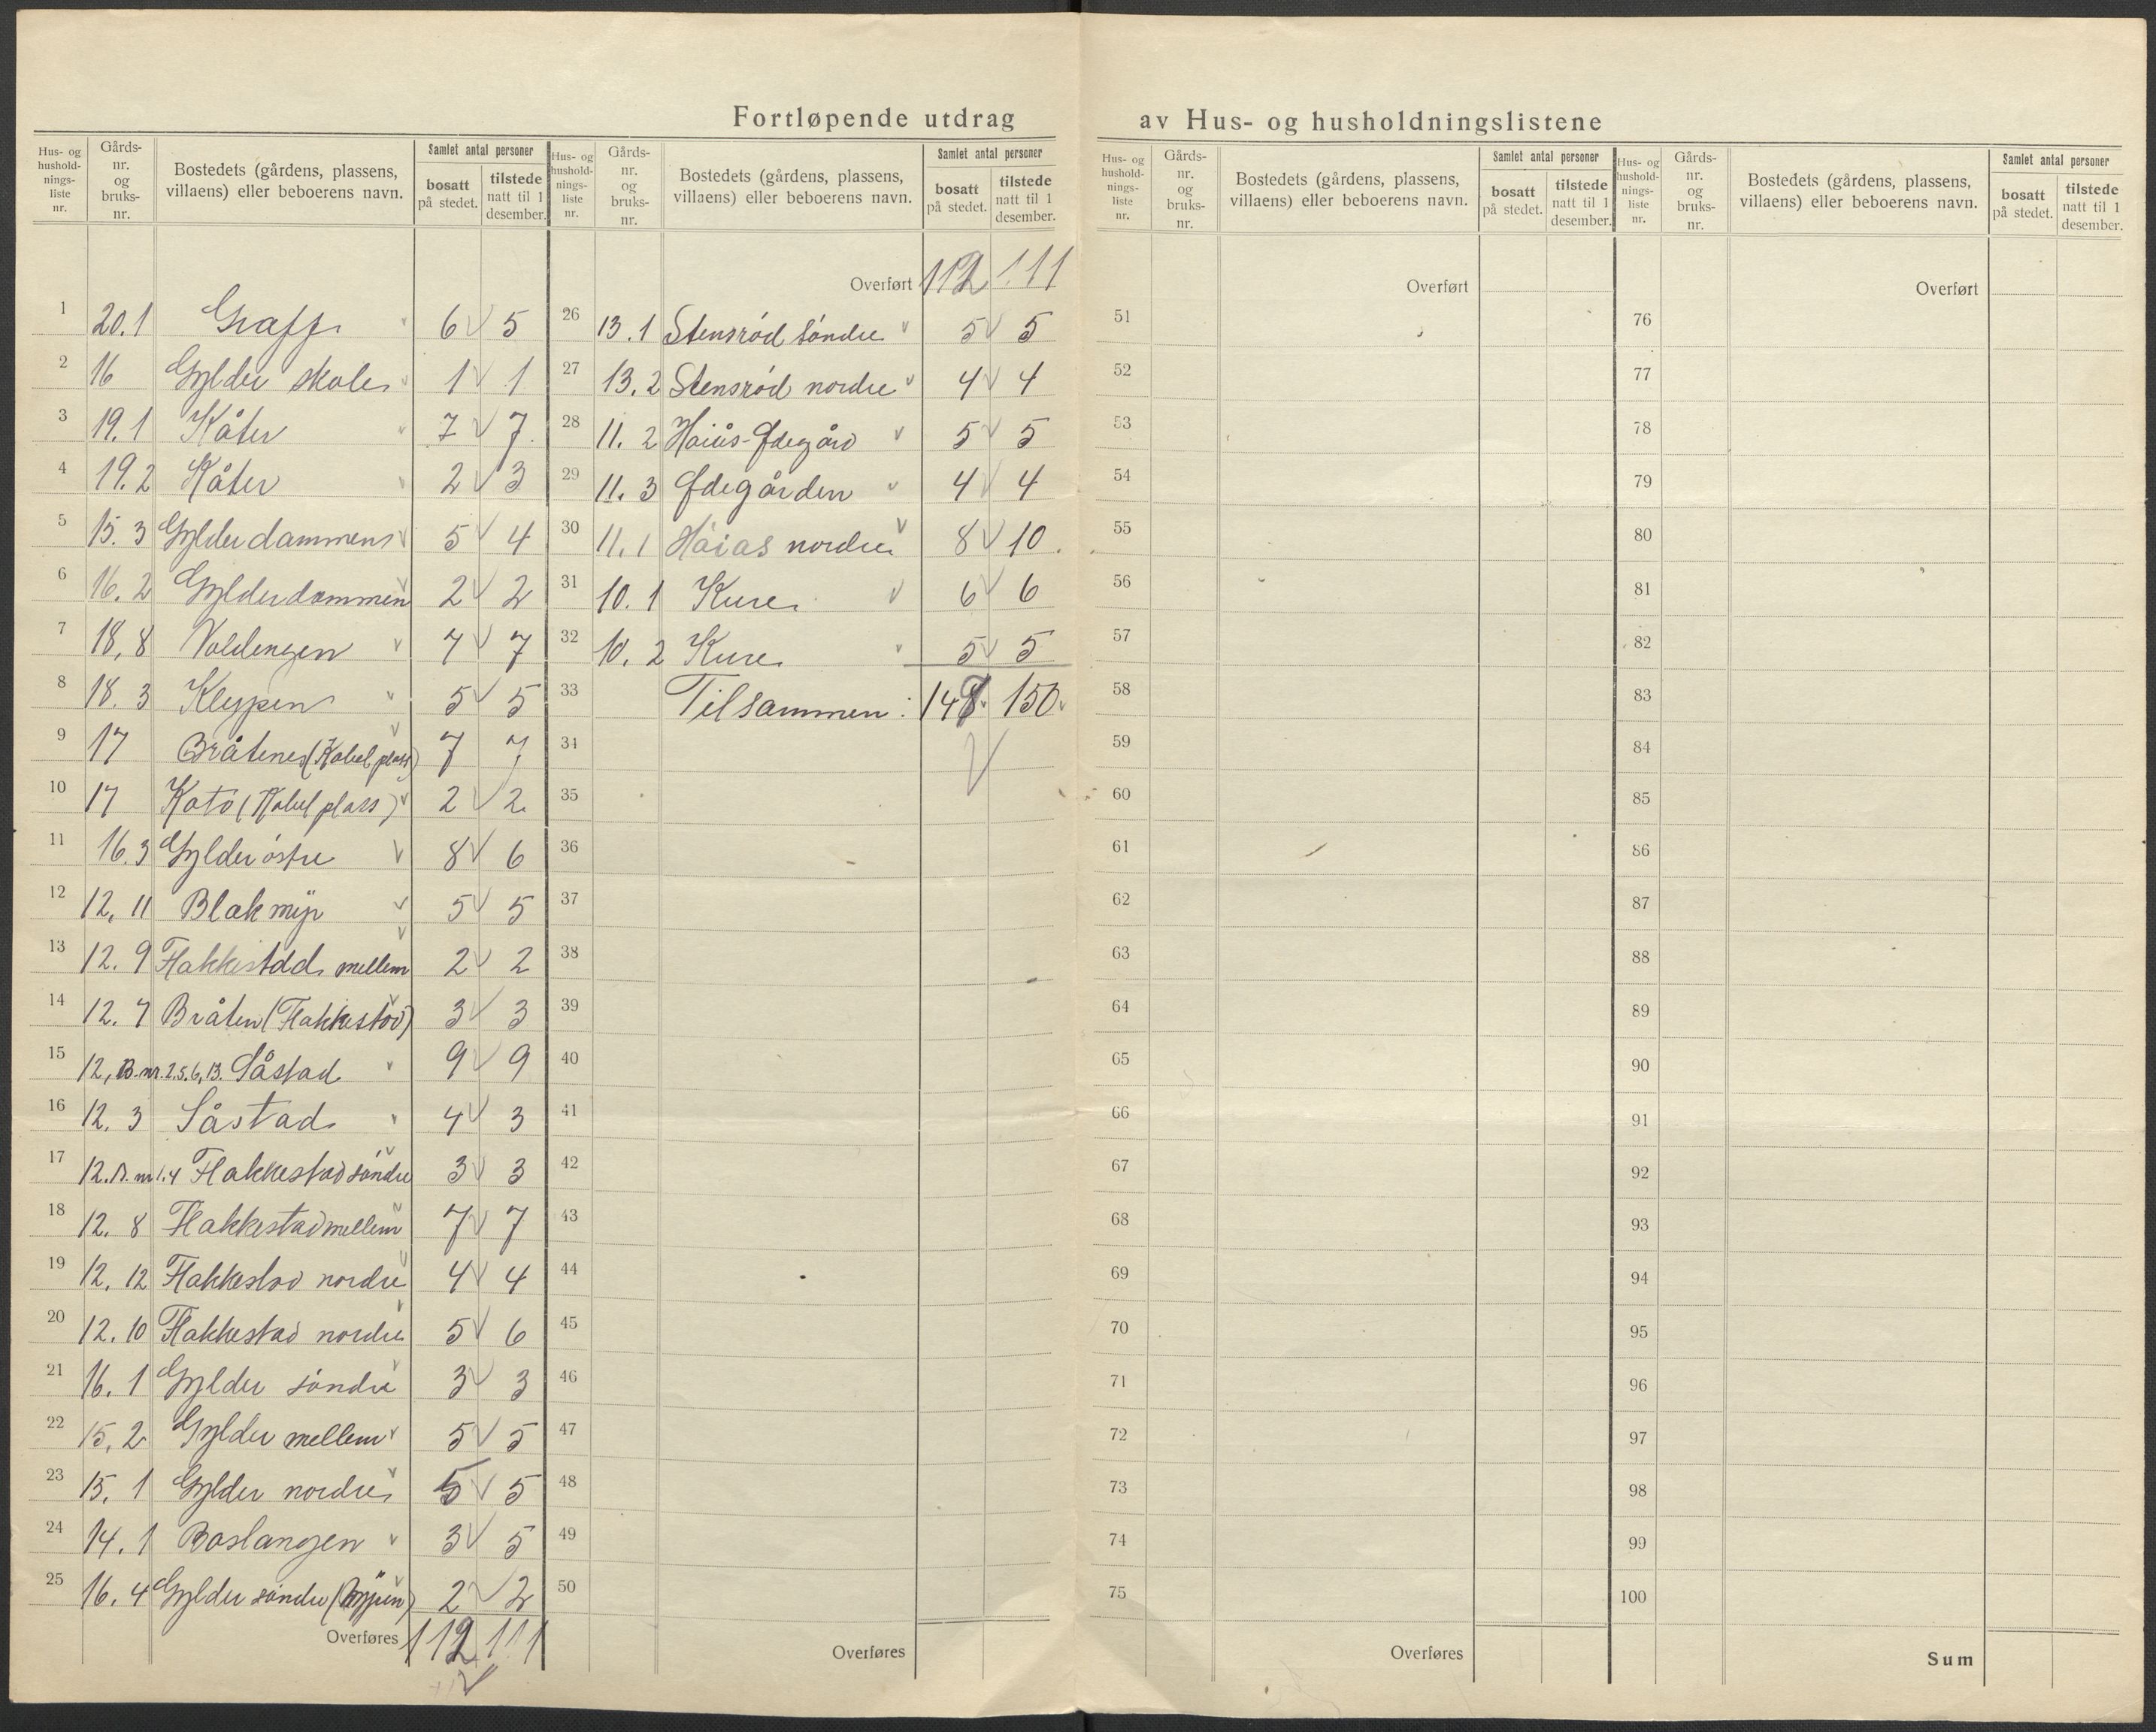 Fortløpende utdrag av Hus- og husholdningslistene
Hus- og hushold-nings-liste nr. Gårds-nr. og bruks-nr. Bostedets (gårdens, plassens, villaens) eller beboerens navn. Samlet antal personer bosatt på stedet. tilstede natt til 1 desember.
1 20.1 Graff 6 5
2 16 Gylder skole 1 1
3 19.1 Kåter 7 7
4 19.2 Kåter 2 3
5 15.3 Gylderdammens 5 4
6 16.2 Gylderdammen 2 2
7 18,8 Voldengen 7 7
8 18.3 Kleypen 5 5
9 17 Bråtene (Kabel plass) 7 7
10 17 Kato (Kabel plass) 2 2
11 16.3 Gylder østre 8 6
12 12,11 Blakmyr 5 5
13 12.9 Flakkestad mellem 2 2
14 12.7 Bråten (Flakkestad) 3 3
15 12, B.nr.2.5.6,13. Såstad 9 9
16 12.3 Såstad 4 3
17 12.B.nr 1.4 Flakkestad søndre 3 3
18 12.8 Flakkestad mellem 7 7
19 12.12 Flakkestad nordre 4 4
20 12.10 Flakkestad nordre 5 6
21 16.1 Gylder søndre 3 3
22 15,2 Gylder mellem 5 5
23 15,1 Gylder nordre 5 5
24 14.1 Baslangen 3 5
25 16.4 Gylder søndre (Myren) 2 2
Overføres 112 111
Hus- og hushold-nings-liste nr. Gårds-nr. og bruks-nr. Bostedets (gårdens, plassens, villaens) eller beboerens navn. Samlet antal personer bosatt på stedet. tilstede natt til 1 desember.
Overført 112 111
26 13.1 Stensrød søndre 5 5
27 13.2 Stensrød nordre 4 4
28 11.2 Haiås-Ødegård 5 5
29 11.3 Ødegården 4 4
30 11.1 Håiås nordre 8 10
31 10.1 Kure 6 6
32 10.2 Kure 5 5
33 Tilsammen: 149. 150.
34
35
36
37
38
39
40
41
42
43
44
45
46
47
48
49
50
Overføres
Hus- og hushold-nings-liste nr. Gårds-nr. og bruks-nr. Bostedets (gårdens, plassens, villaens) eller beboerens navn. Samlet antal personer bosatt på stedet. tilstede natt til 1 desember.
Overført
51
52
53
54
55
56
57
58
59
60
61
62
63
64
65
66
67
68
69
70
71
72
73
74
75
Overføres
Hus- og hushold-nings-liste nr. Gårds-nr. og bruks-nr. Bostedets (gårdens, plassens, villaens) eller beboerens navn. Samlet antal personer bosatt på stedet. tilstede natt til 1 desember.
Overført
76
77
78
79
80
81
82
83
84
85
86
87
88
89
90
91
92
93
94
95
96
97
98
99
100
Sum